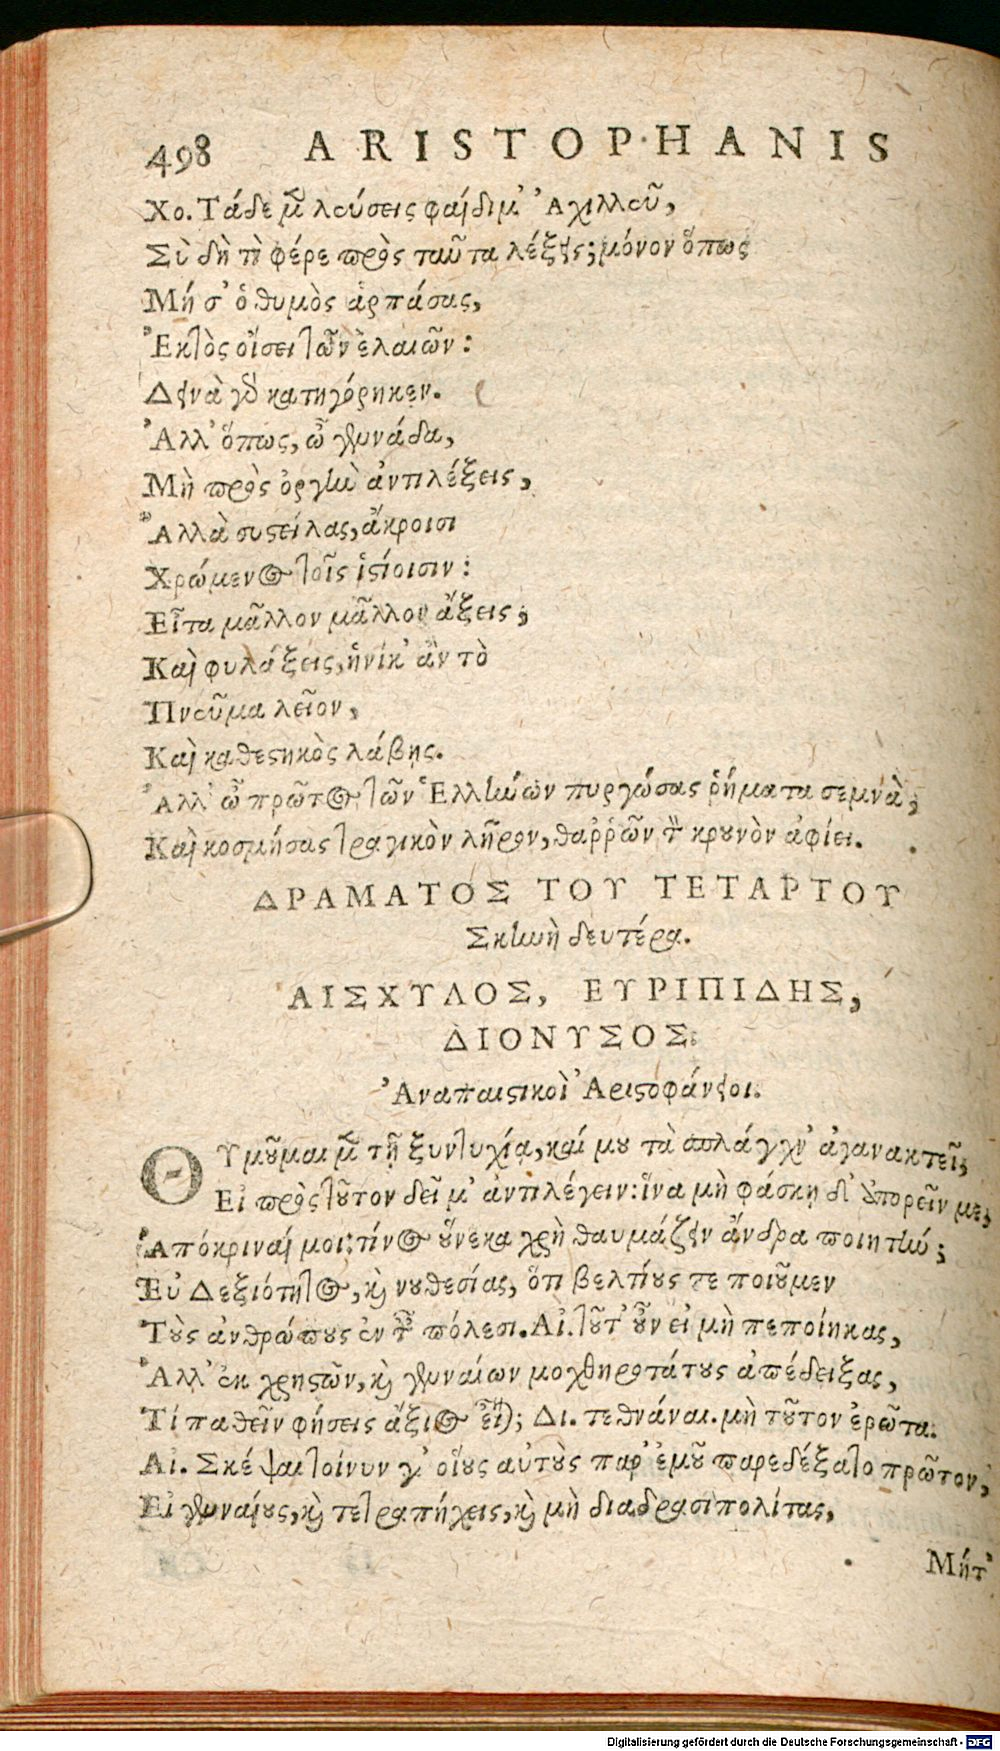 498 ARISTOPHANIS
Χο. Τάδε μὲν λούσεις φαίδιμ' Ἀχιλλεῦ,
Σὺ δὴ τὶ φέρε πρὸς ταῦτα λέξεις; μόνον ὅπως
Μή σ' ὁ θυμὸς ἁρπάσας,
Ἐκτὸς οἴσει τῶν ἐλαιῶν:
Δεινὰ γὰρ κατηγόρηκεν.
Ἀλλ' ὅπως, ὦ γεννάδα,
Μὴ πρὸς ὀργὴν ἀντιλέξεις,
Ἀλλὰ συστείλας, ἄκροισι
Χρώμενος τοῖς ἱστίοισιν:
Εἶτα μᾶλλον μᾶλλον ἄξεις,
Καὶ φυλάξεις, ἡνίκ' ἂν τὸ
Πνεῦμα λεῖον,
Καὶ καθεστηκὸς λάβῃς.
Ἀλλ' ὦ πρῶτος τῶν Ἑλλήνων πυργώσας ῥήματα σεμνὰ,
Καὶ κοσμήσας τραγικὸν λῆρον, θαῤῥῶν τὸν κρουνὸν ἀφίει.
ΔΡΑΜΑΤΟΣ ΤΟΥ ΤΕΤΑΡΤΟΥ
Σκηνὴ δευτέρα.
ΑΙΣΧΥΛΟΣ, ΕΥΡΙΠΙΔΗΣ,
ΔΙΟΝΥΣΟΣ.
Ἀναπαιστικοὶ Ἀριστοφάνειοι.
ΘΥμοῦμαι μὲν τῇ ξυντυχίᾳ, καί μου τὰ σπλάγχν' ἀγανακτεῖ,
Εἰ πρὸς τοῦτον δεῖ μ' ἀντιλέγειν: ἵνα μὴ φάσκῃ δ' ἀπορεῖν με,
Ἀπόκριναί μοι; τίνος οὕνεκα χρὴ θαυμάζειν ἄνδρα ποιητήν;
Εὐ Δεξιότητος, καὶ νουθεσίας, ὅτι βελτίους τε ποιοῦμεν
Τοὺς ἀνθρώπους ἐν ταῖς πόλεσι. Αἰ. τοῦτ' οὖν εἰ μὴ πεποίηκας,
Ἀλλ' ἐκ χρηστῶν, καὶ γενναίων μοχθηροτάτους ἀπέδειξας,
Τί παθεῖν φήσεις ἄξιος εἶναι; Δι. τεθνάναι. μὴ τοῦτον ἐρώτα.
Αἰ. Σκέψαι τοίνυν γ' οἵους αὐτοὺς παρ' ἐμοῦ παρεδέξατο πρῶτον,
Εἰ γενναίους, καὶ τετραπήχεις, καὶ μὴ διαδρασιπολίτας,
Μήτ'
Digitalisierung gefördert durch die Deutsche Forschungsgemeinschaft - DFG